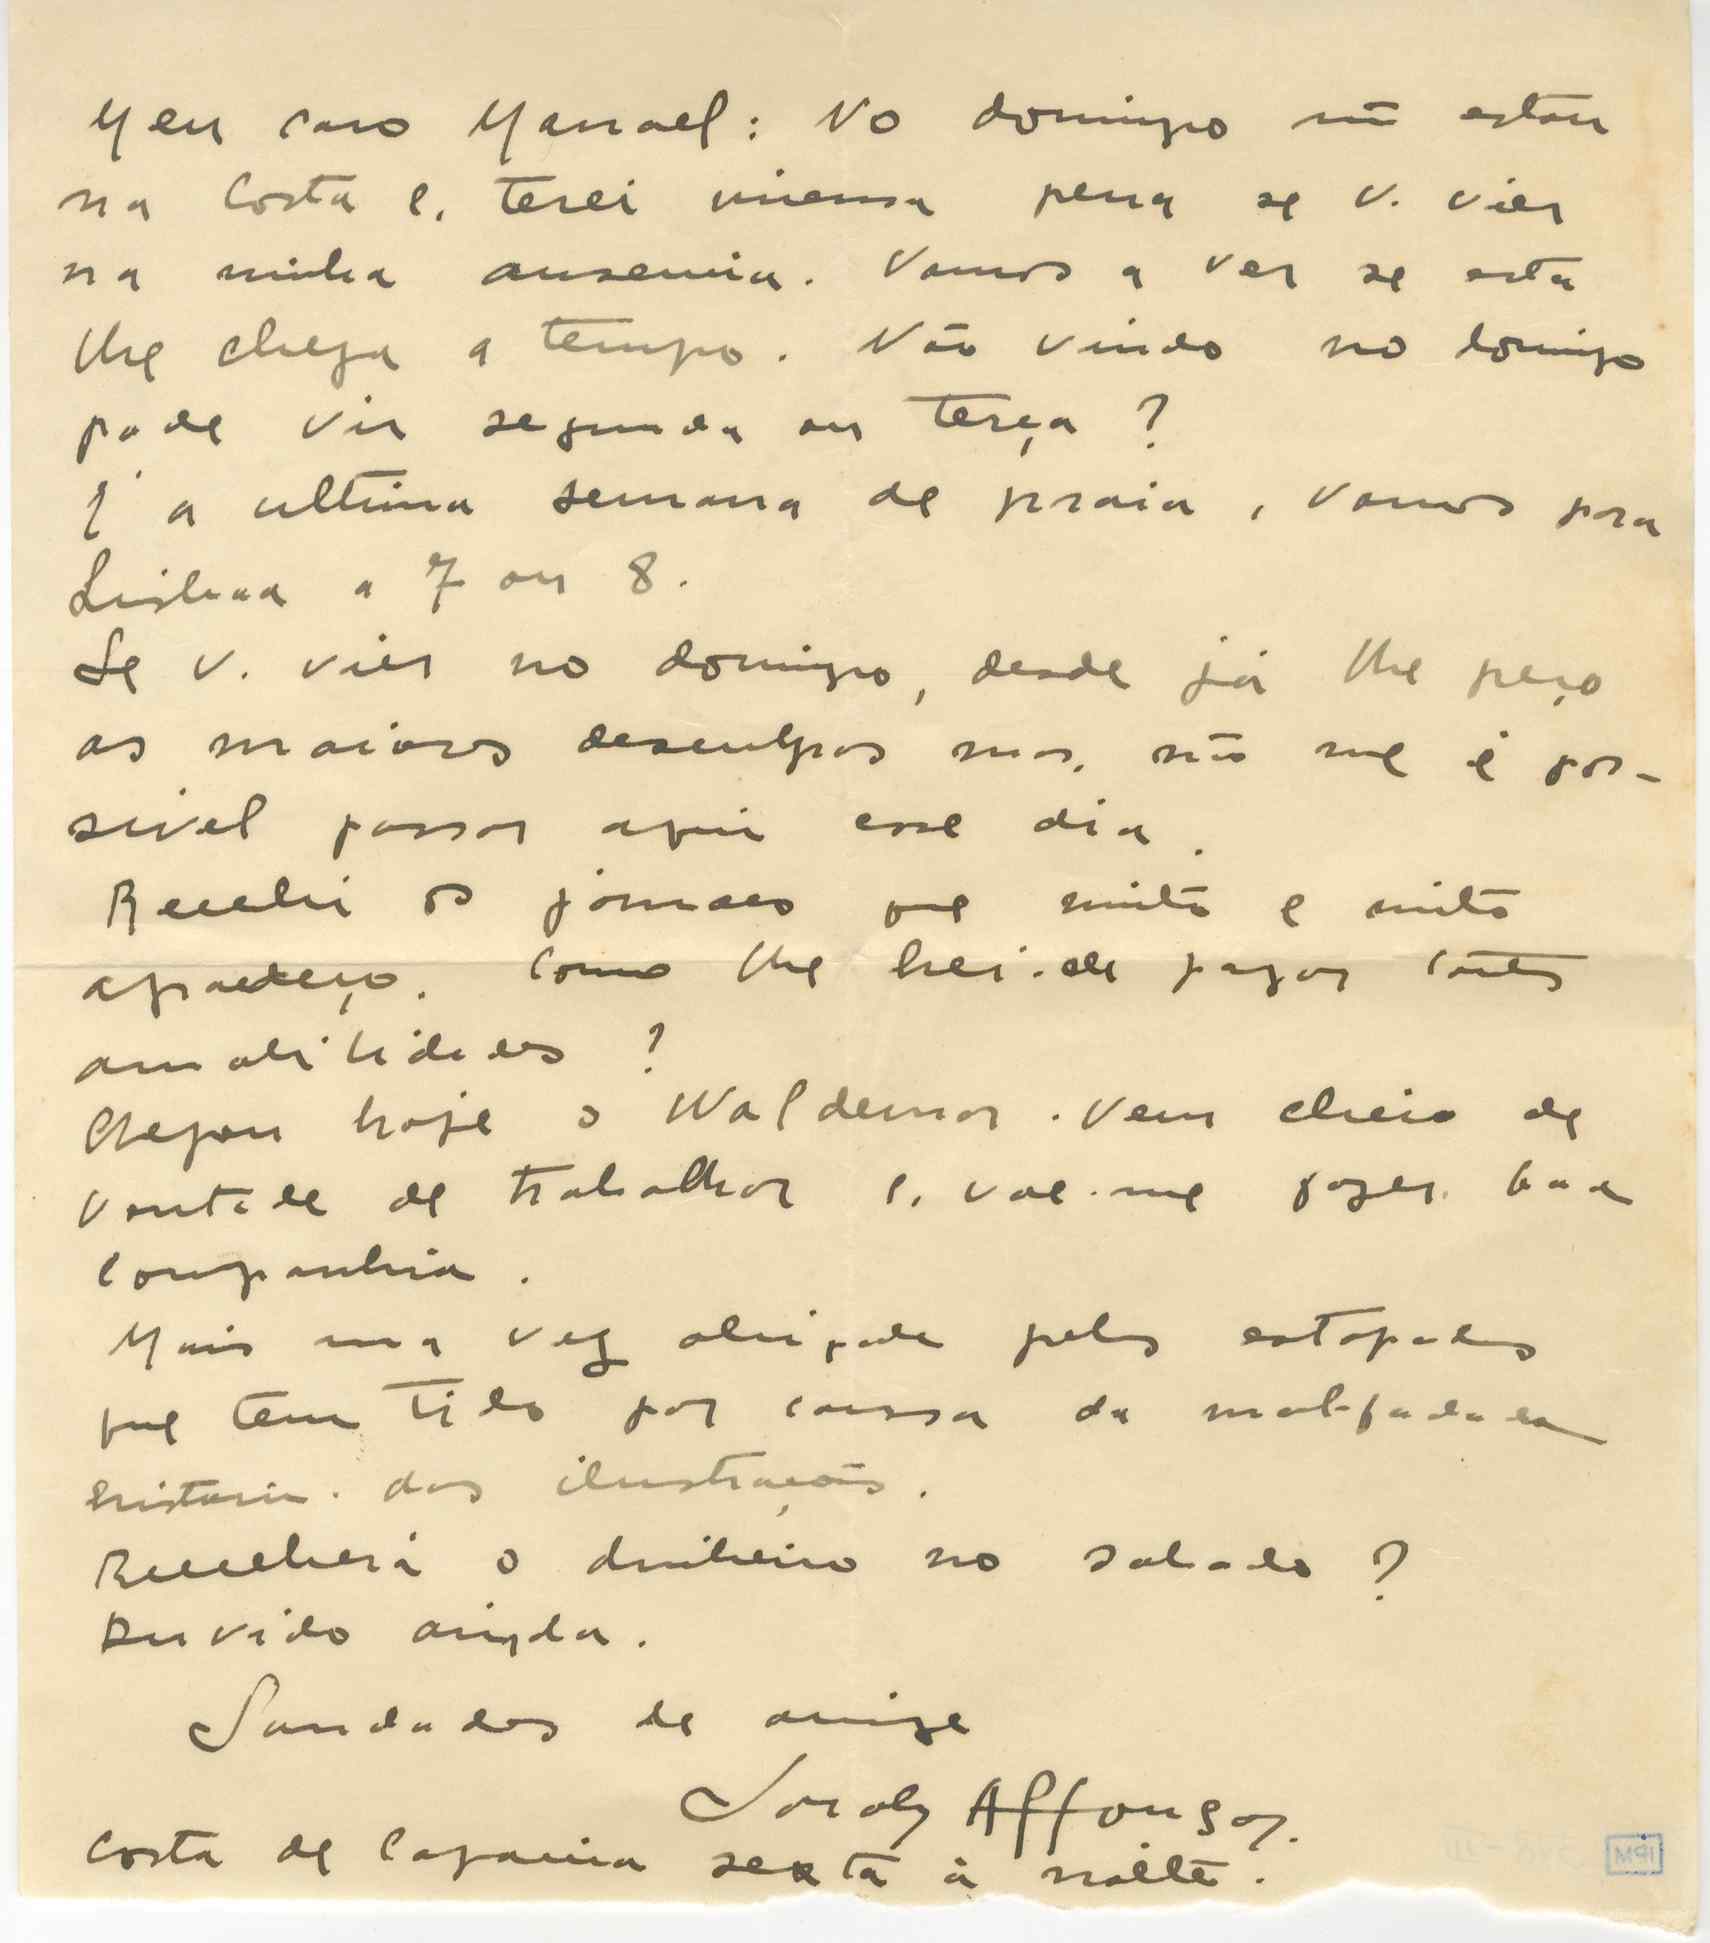 Meu caro Manoel: No domingo não estou
na Costa e, terei imensa pena se V. vier
na minha ausencia. Vamos a ver se esta
lhe chega a tempo. Não vindo no domingo
pode vir segunda ou terça?
É a ultima semana de praia, vamos para
Lisboa a 7 ou 8.
Se V. vier no domingo, desde já lhe peço
as maiores desculpas mas, não me é pos-
sivel passar aqui esse dia.
Recebi os jornaes que muito e muito
agradeço. Como lhe hei-de pagar tantas
amabilidades?
Chegou hoje o Waldemar. Vem cheio de
vontade de trabalhar e, vae-me fazer boa
companhia.
Mais uma vez obrigada pelas estopadas
que tem tido por causa da mal-fadada
historia das ilustrações.
Receberá o dinheiro no sabado?
Duvido ainda.
Saudades da amiga
Sarah Affonso.
Costa de Caparica sexta à noite.